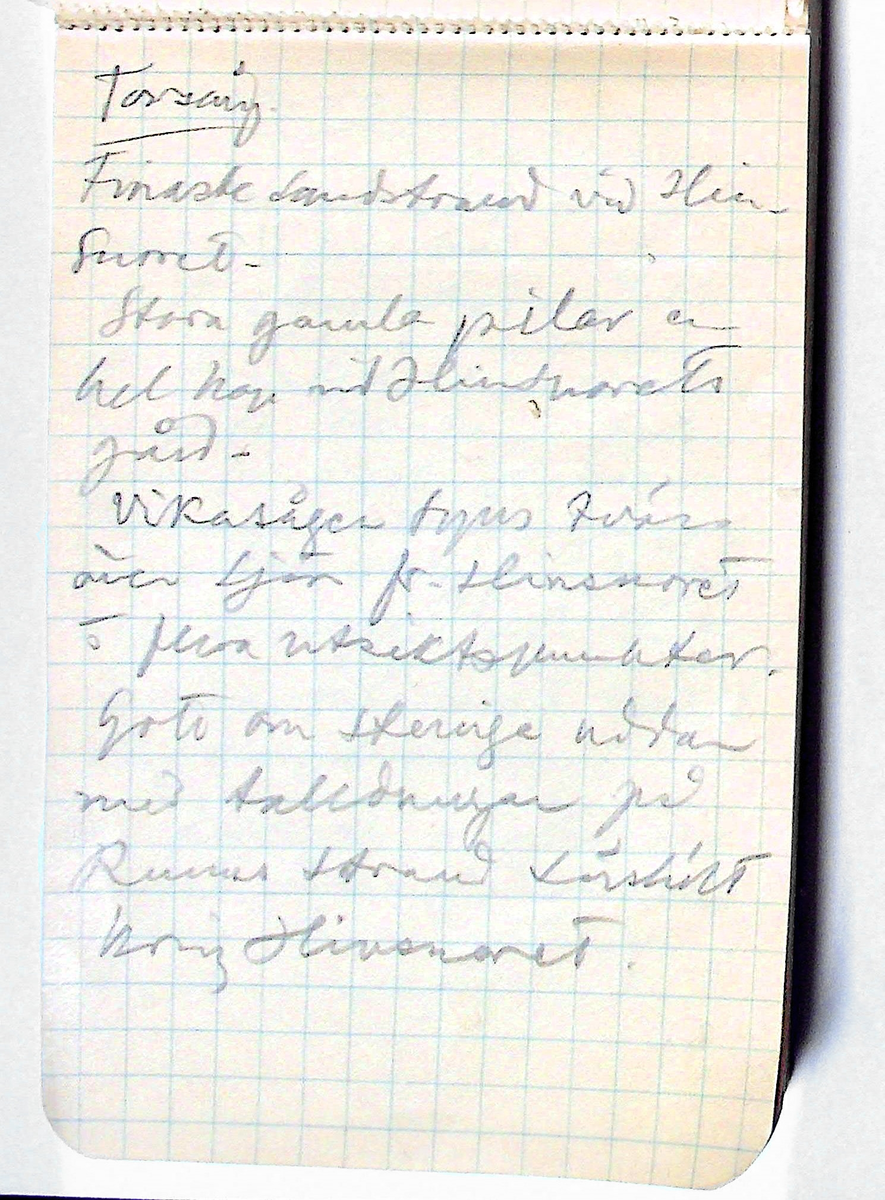 Torsång.
Finaste sandstrand vid Hin-
snoret -
Stora gamla pilar en
hel hop vid Hinsnorets
gård -
Vikasågen synes tvärs
över sjön fr. Hinsnoret
o flera utsiktspunkter.
Gott om sterige uddar
med anledningar på
Runns strand särskilt
kring Hinsnoret.